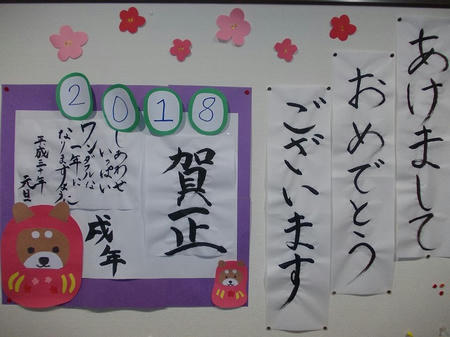 あけまして
おめでとう
ございます
2018
賀正
しあわせ
いっぱい
ワンダフルな
一年に
なりますように
平成三十年
元旦
戌年